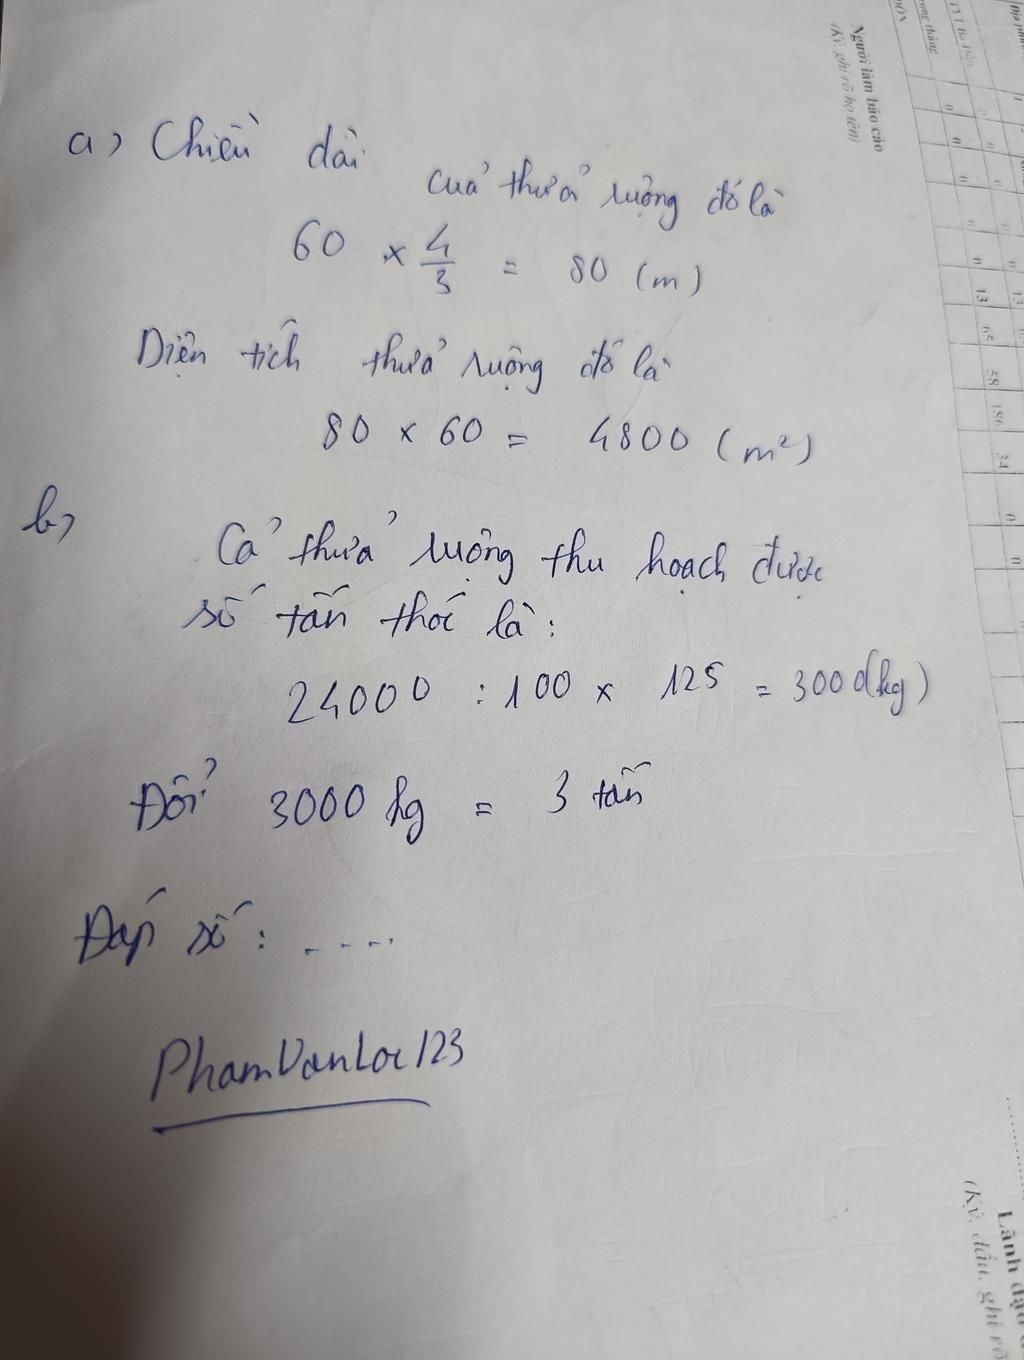 a) Chiều dài của thửa ruộng đó là
60 × 4/3 = 80 (m)
Diện tích thửa ruộng đó là
80 × 60 = 4800 (m²)
b)
Cả thửa ruộng thu hoạch được
số tấn thóc là:
24000 : 100 × 125 = 3000(kg)
Đổi 3000 kg = 3 tấn
Đáp số: ....
PhamVanLoc123
Người làm báo cáo
(Ký, ghi rõ họ tên)
Lãnh đạo
(Ký, dấu, ghi rõ